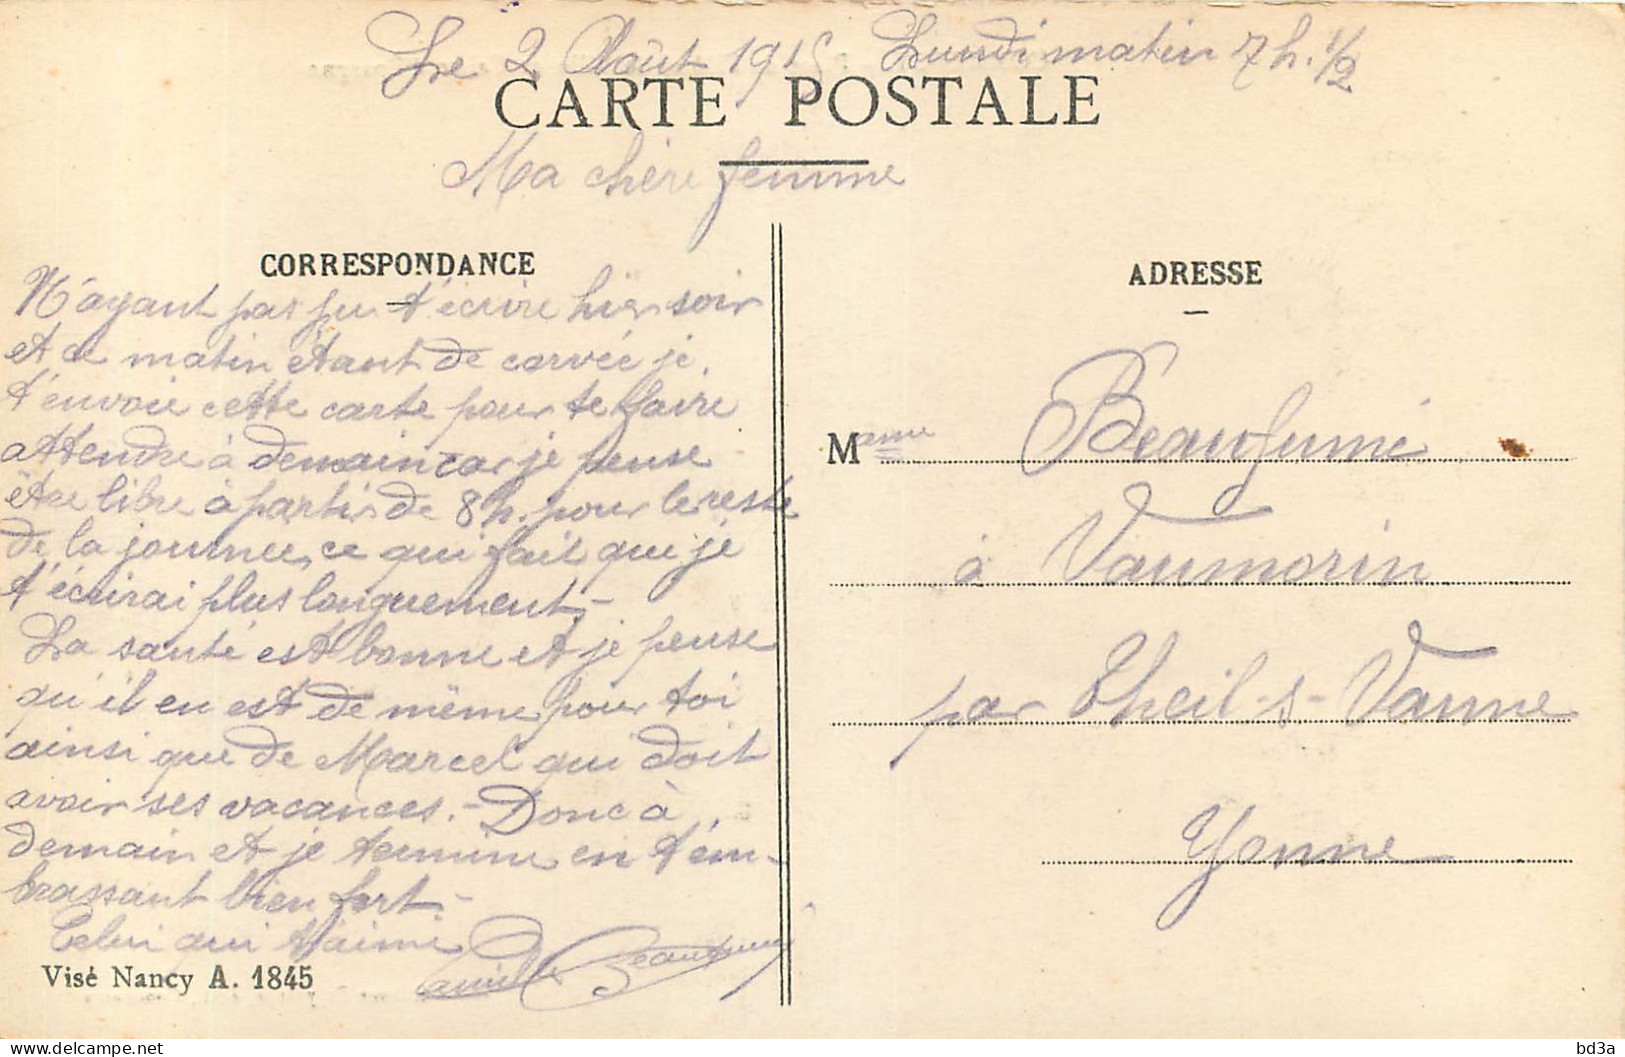 Le 2 Août 1915 Lundi matin 7h. 1/2
CARTE POSTALE
Ma chère femme
CORRESPONDANCE
N'ayant pas pu t'écrire hier soir
et ce matin étant de corvée je
t'envoie cette carte pour te faire
attendre à demain car je pense
être libre à partir de 8h. pour le reste
de la journée, ce qui fait que je
t'écrirai plus longuement.-
La santé est bonne et je pense
qu'il en est de même pour toi
ainsi que de Marcel qui doit
avoir ses vacances.- Donc à
demain et je termine en t'em-
brassant bien fort.-
Celui qui t'aime
Camille Beaufumé
Visé Nancy A. 1845
ADRESSE
Mame Beaufumé
à Vaumorin
par Theil-s-Vanne
Yonne
bd3a